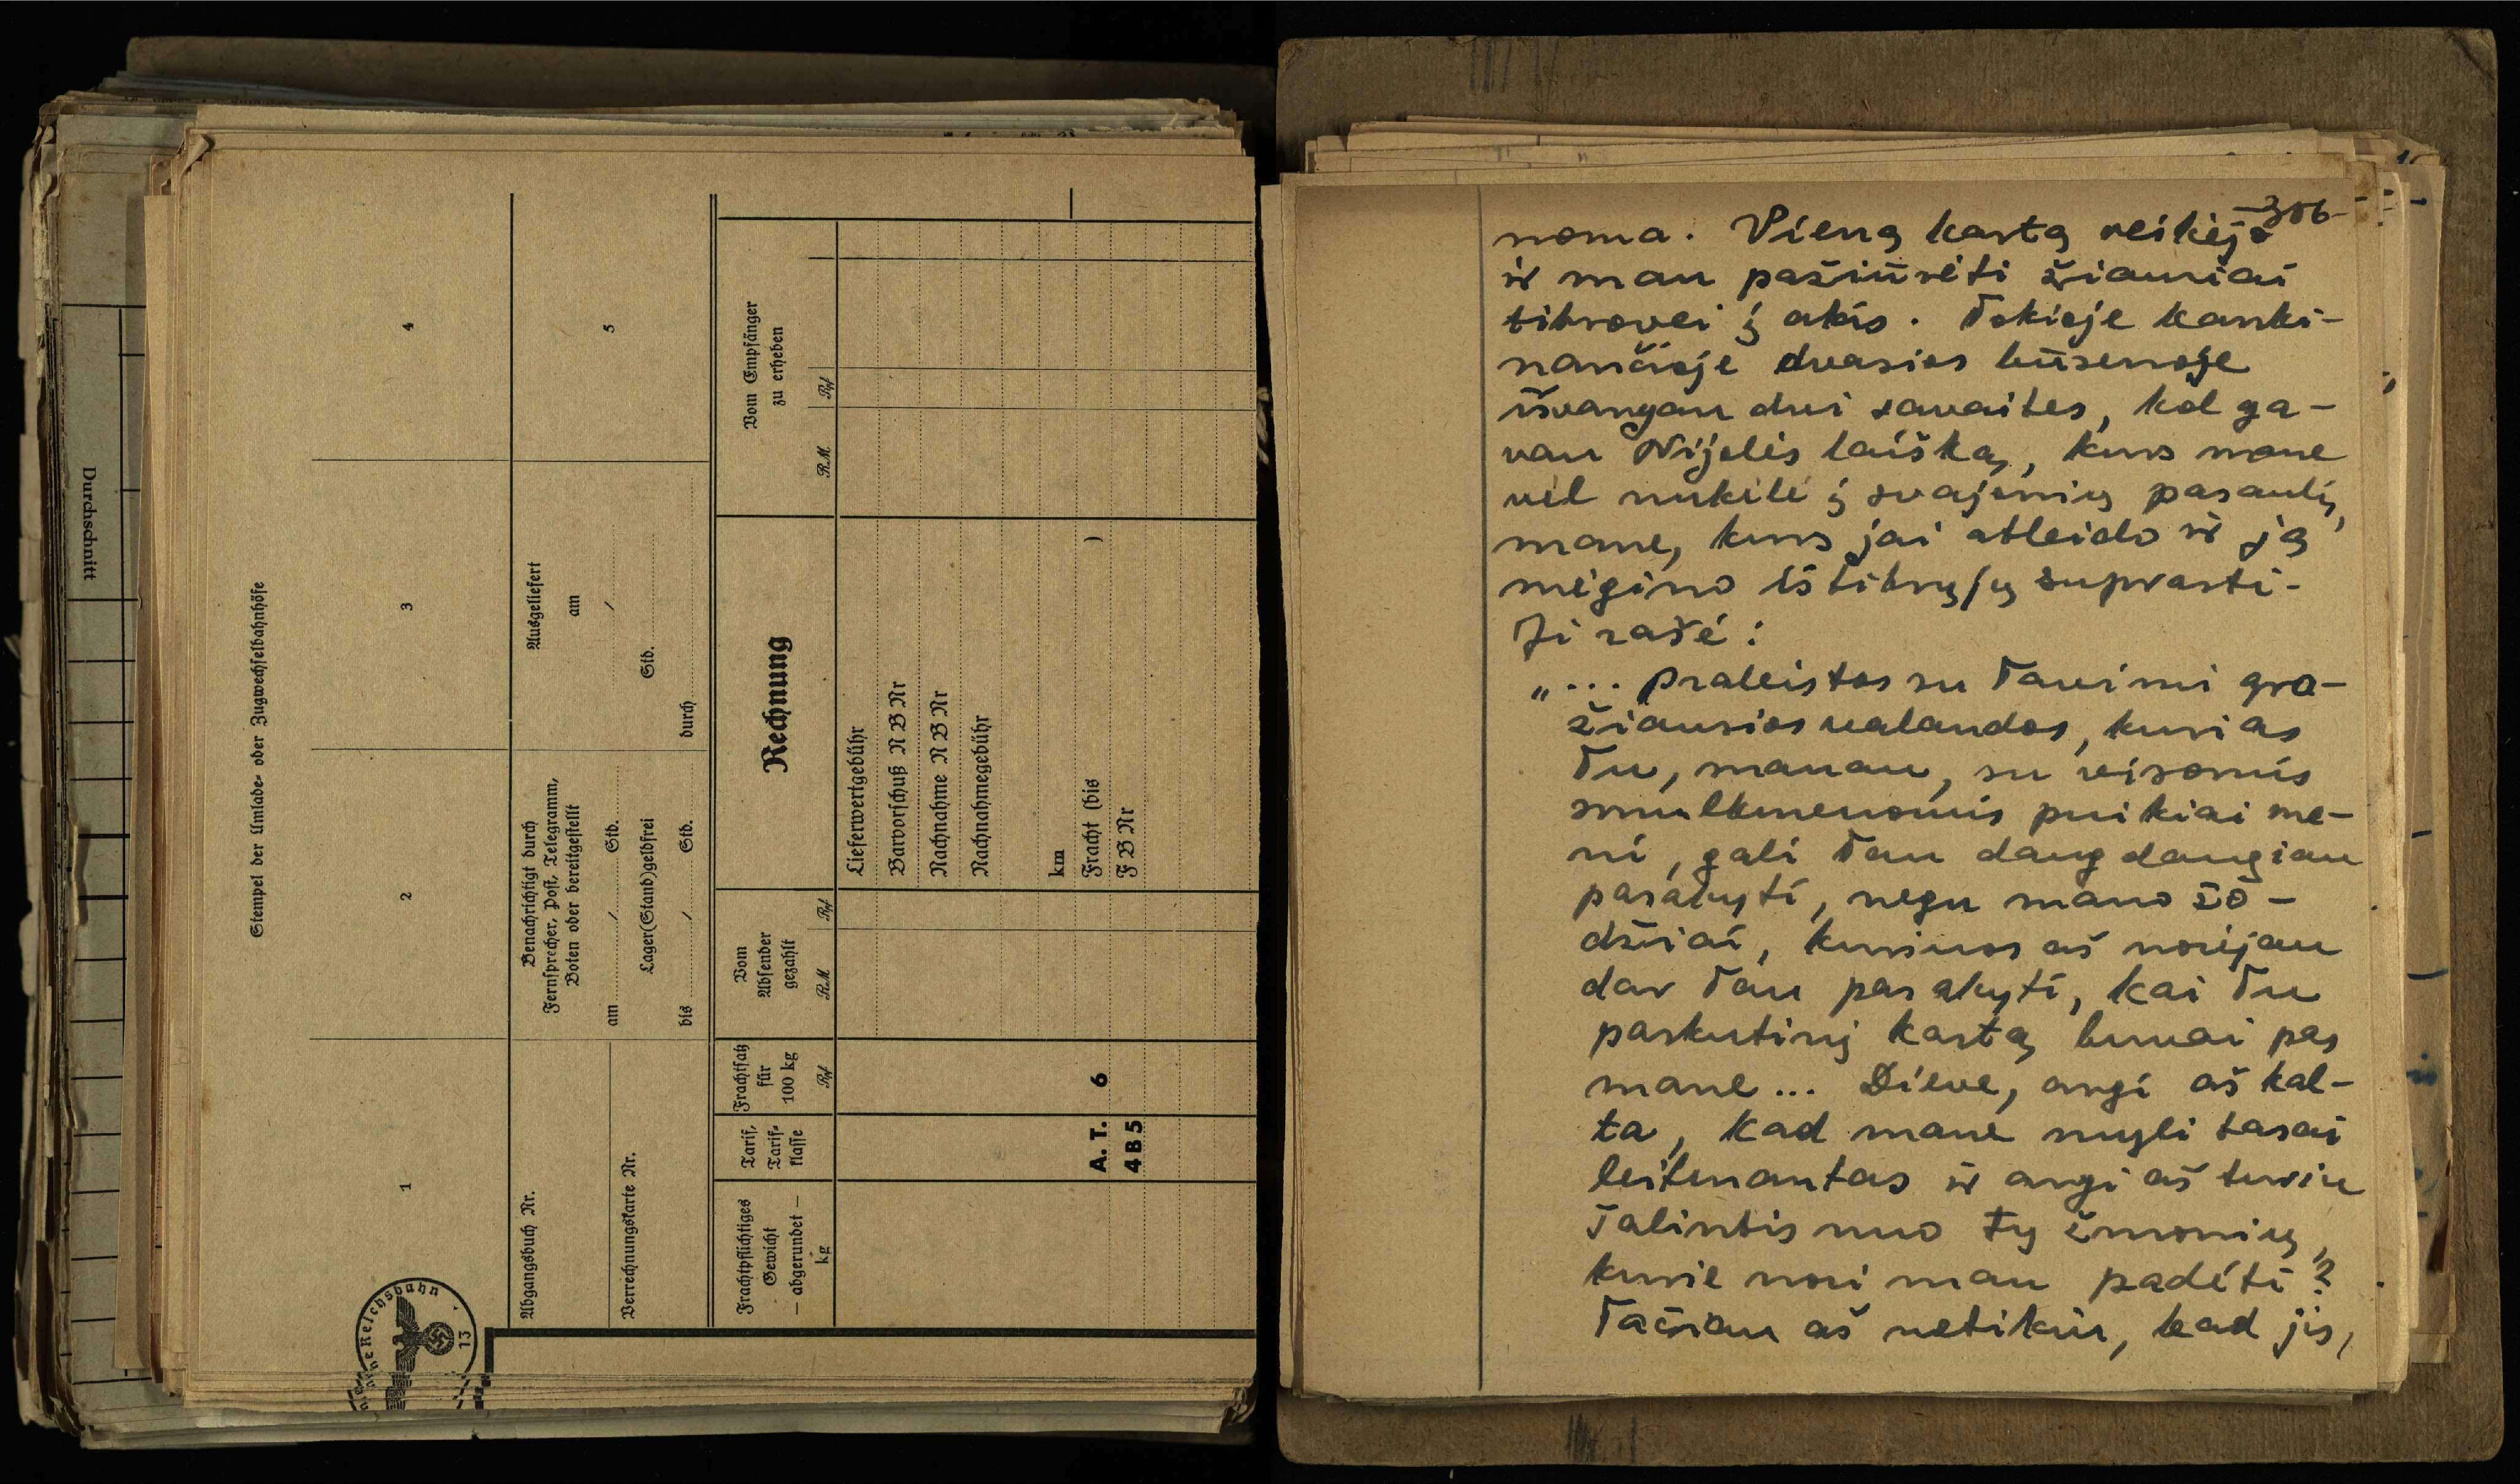 Durchschnitt
Stempel der Umlade- oder Zugwechselbahnhöfe
1
2
3
4
Abgangsbuch Nr.
Verrechnungskarte Nr.
Benachrichtigt durch
Fernsprecher, Post, Telegramm,
Boten oder bereitgestellt
am / Std.
Lager(Stand)geldfrei
bis / Std.
Ausgeliefert
am
/
Std.
durch
5
Frachtpflichtiges
Gewicht
— abgerundet —
kg
Tarif,
Tarif-
klasse
Frachtsatz
für
100 kg
Rpf
Vom
Absender
gezahlt
RM Rpf
Rechnung
Vom Empfänger
zu erheben
RM Rpf
Lieferwertgebühr
Barvorschuß N B Nr
Nachnahme N B Nr
Nachnahmegebühr
km
A. T. 6 Fracht (bis )
4 B 5 F B Nr
Reichsbahn
13
-306-
noma. Vieną kartą reikėjo
ir man pažiūrėti žiauriai
tikrovei į akis. Tokioje kanki-
nančioje dvasios būsenoje
išvargau dvi savaites, kol ga-
vau Nijolės laišką, kurs mane
vėl nukėlė į svajonių pasaulį,
mane, kurs jai atleido ir ją
mėgino iš tikrųjų suprasti.
Ji rašė:
„... praleistos su Tavimi gra-
žiausios valandos, kurias
Tu, manau, su visomis
smulkmenomis puikiai me-
ni, gali Tau daug daugiau
pasakyti, negu mano žo-
džiai, kuriuos aš norėjau
dar Tau pasakyti, kai Tu
paskutinį kartą buvai pas
mane... Dieve, argi aš kal-
ta, kad mane myli tasai
leitenantas ir argi aš turiu
šalintis nuo tų žmonių,
kurie nori man padėti?
Tačiau aš netikiu, kad jis,